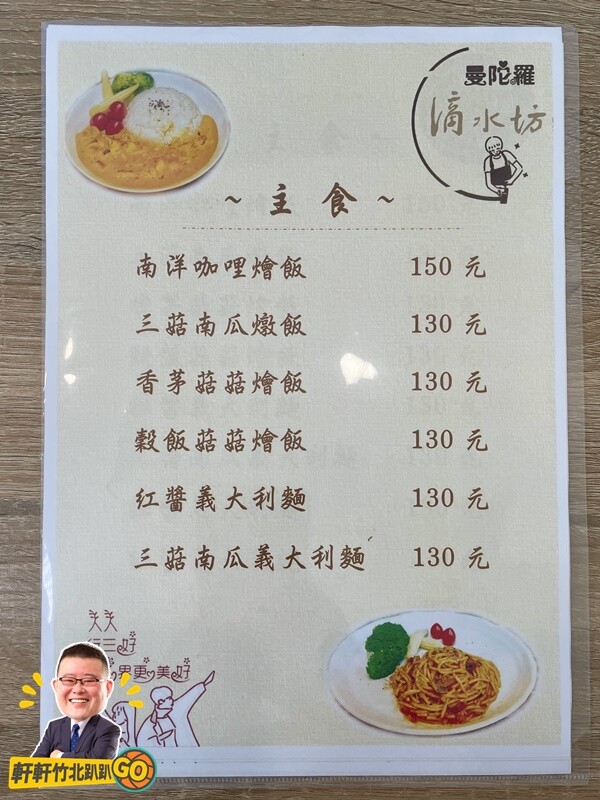 曼陀羅
滴水坊
~ 主 食 ~
南洋咖哩燴飯 150 元
三菇南瓜燉飯 130 元
香茅菇菇燴飯 130 元
穀飯菇菇燴飯 130 元
紅醬義大利麵 130 元
三菇南瓜義大利麵 130 元
天天
行三好
界更美好
軒軒竹北趴趴GO